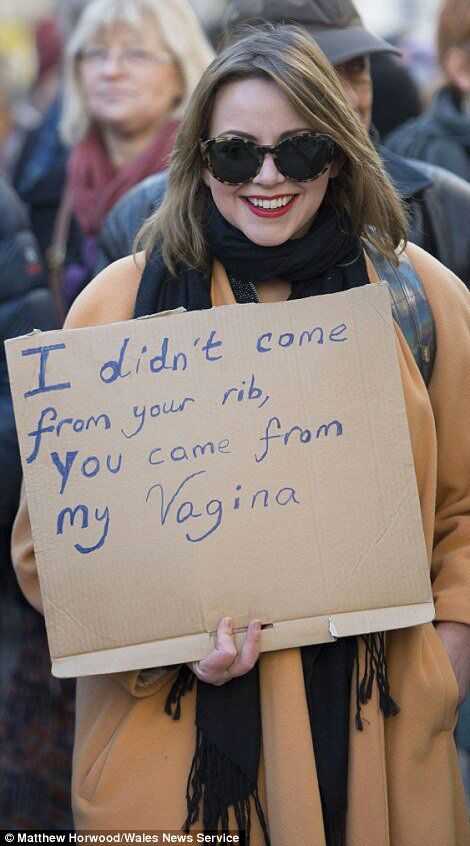 I didn't come
from your rib,
You came from
my Vagina
© Matthew Horwood/Wales News Service